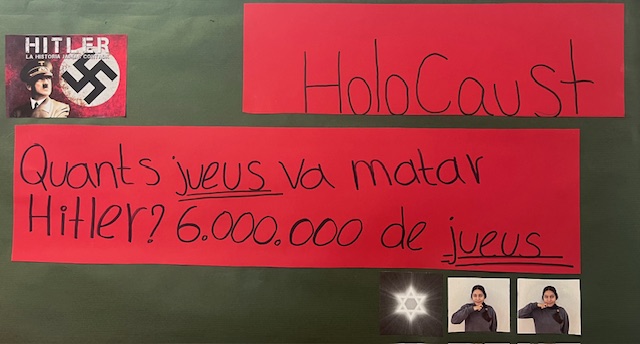 HITLER
LA HISTORIA JAMÁS CONTADA
HoloCaust
Quants jueus va matar
Hitler? 6.000.000 de jueus